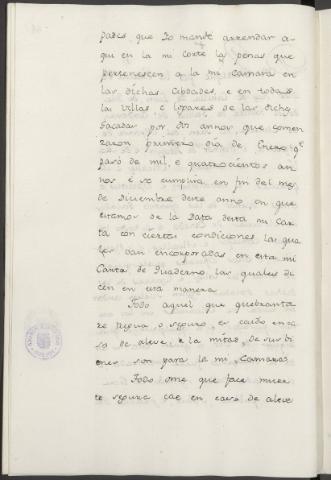 pades que Io mandé arrendar a-
qui en la mi Corte la penas que
pertenescen a la mi Camara en
las dichas Cibdades, e en todas
la Villas e logares de las dicha
Sacadas por dos annos que comen
zaron primero dia de Enero qe
pasó de mil, e quatrocientos an
nos e se cumplira en fin del mes
de Diciembre deste anno, en que
estamos de la Data desta mi Car
ta con ciertas condiciones las qua
les van encorporadas en esta mi
Carta de Quaderno las quales di
cen en esta manera
Todo aquel que quebranta
re tregua o seguro, es caido en ca
so de aleve, e la mitad de sus bi
enes son para la mi Camara
Todo ome que face muer
te segura cae en caso de aleve